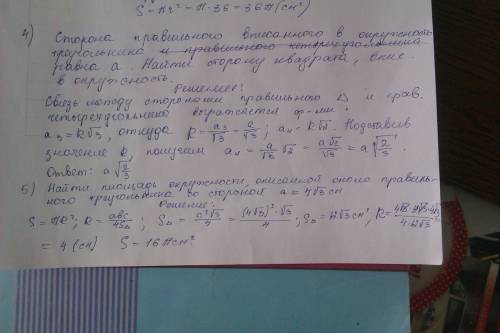 S = πr² = π·36 = 36π (см²)
4) Сторона правильного вписанного в окружность
треугольника и правильного четырехугольника
равна a. Найти сторону квадрата, впис.
в окружность.
Решение:
Связь между сторонами правильного Δ и прав.
четырехугольника выражается ф-ми:
a₃ = R√3, откуда R = a₃/√3 = a/√3; a₄ = R√2. Подставив
значение R, получим a₄ = a/√3 √2 = a√2/√3 = a√(2/3).
Ответ: a√(2/3)
5) Найти площадь окружности, описанной около правиль-
ного треугольника со стороной a = 4√3 см
Решение:
S = πR²; R = abc/4SΔ; SΔ = a²√3/4 = (4√3)²·√3/4; SΔ = 12√3 см²; R = 4√3·4√3·4√3/4·12√3
= 4 (см) S = 16π см².